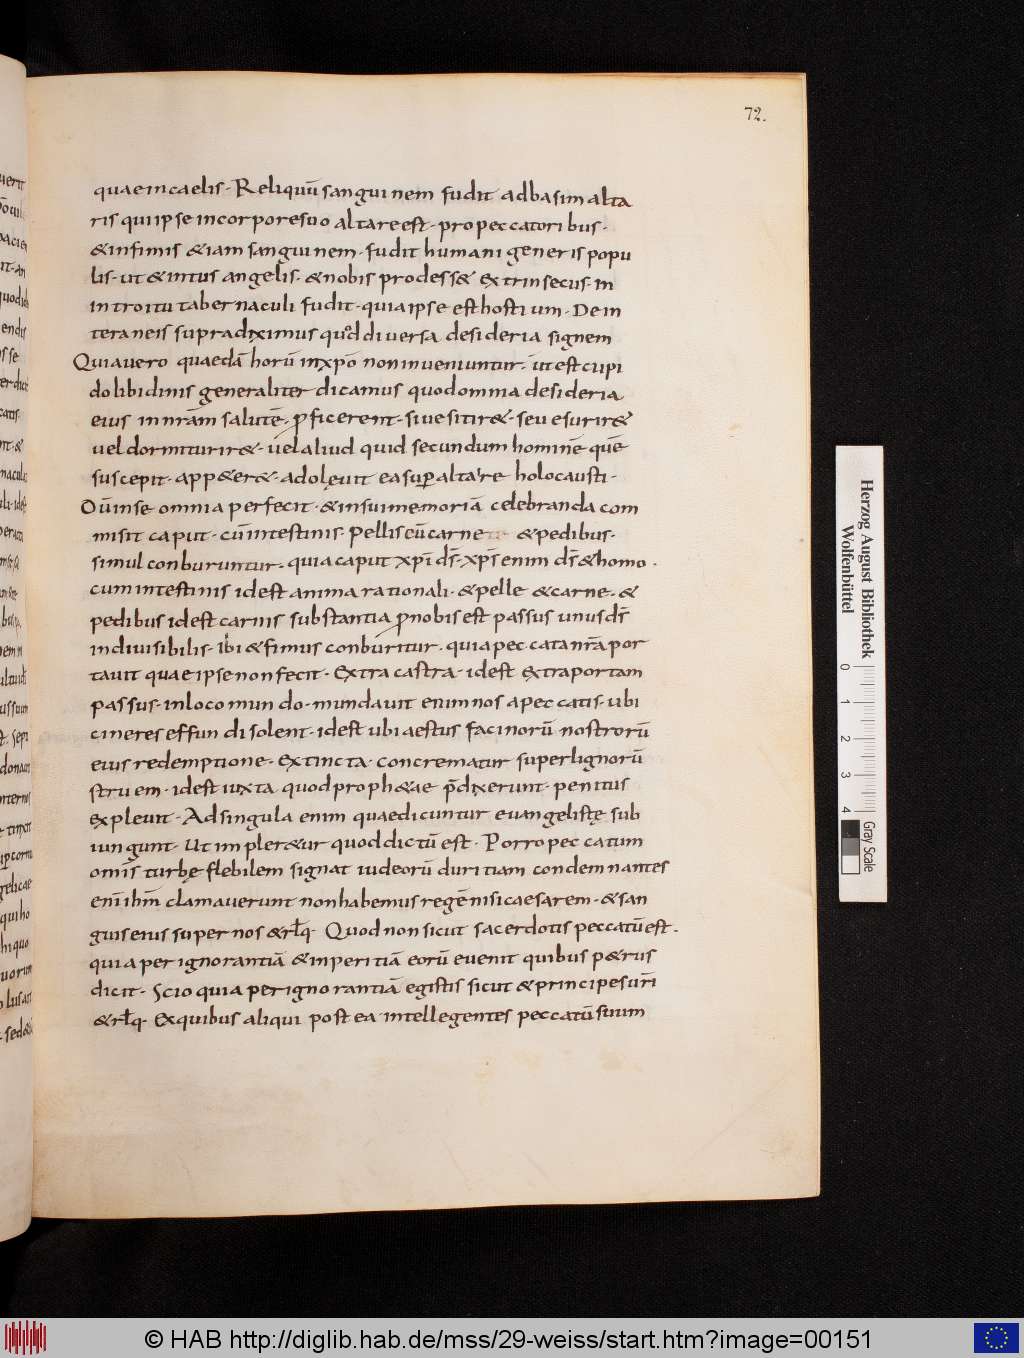 72.
quae in caelis · Reliquū sanguinem fudit ad basim alta
ris qui ipse in corpore suo altare est · pro peccatoribus ·
& infimis & iam sanguinem · fudit humani generis popu
lis · ut & intus angelis · & nobis prodess& extrinsecus · in
introitu tabernaculi fudit · quia ipse est hostium · De in
teraneis supradiximus quod diversa desideria signent
Quia vero quaedā horū in xp̄o non inveniuntur · ut est cupi
do libidinis generaliter dicamus quod omnia desideria
eius in nr̄am salutē · ꝓficerent · sive sitir& · seu esurir&
vel dormiturir& · vel aliud quid secundum hominē quē
suscepit · app&er& · adolevit ea sup̱ altare holocausti ·
Oūm se omnia perfecit · & in sui memoriā celebranda com
misit caput · cū intestinis · pellis cū carne & pedibus ·
simul conburuntur · quia caput xp̄i ds̄ · xp̄s enim ds̄ & homo ·
cum intestinis id est anima rationali · & pelle & carne · &
pedibus id est carnis substantia ꝓ nobis est passus unus ds̄
indivisibilis · Ibi & fimus conburitur · quia peccata nr̄a por
tavit quae ipse non fecit · Extra castra · id est extra portam
passus · in loco mundo · mundavit enim nos a peccatis · ubi
cineres effundi solent · id est ubi aestus facinorū nostrorū
eius redemptione · extincta · concrematur super lignorū
struem · id est iuxta quod proph&ae p̄dixerunt · penitus
explevit · Ad singula enim quae dicuntur evangelistę sub
iungunt · Ut impler&ur quod dictū est · Porro peccatum
omīs turbę flebilem signat iudeorū duritiam condemnantes
enī ihm̄ clamaverunt non habemus regē nisi caesarem · & san
guis eius super nos & rl̄q · Quod non sicut sacerdotis peccatū est ·
quia per ignorantiā & inperitiā eorū evenit quibus p&rus
dicit · Scio quia per ignorantiā egistis sicut & principes ur̄i
& rl̄q · Ex quibus aliqui postea intellegentes peccatū suum
Herzog August Bibliothek
Wolfenbüttel
0 1 2 3 4
Gray Scale
© HAB http://diglib.hab.de/mss/29-weiss/start.htm?image=00151